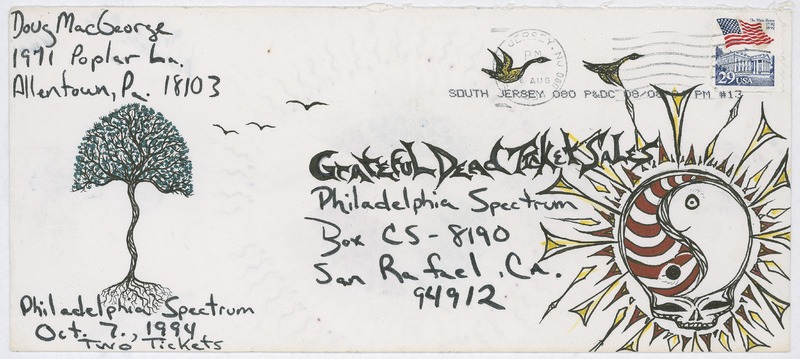 Doug MacGeorge
1971 Poplar La.
Allentown, Pa. 18103
JERSEY NJ 080
PM
AUG
SOUTH JERSEY 080 P&DC 08/0 PM #13
29 USA
Grateful Dead Ticket Sales
Philadelphia Spectrum
Box CS-8190
San Rafael, CA.
94912
Philadelphia Spectrum
Oct. 7, 1994
Two Tickets